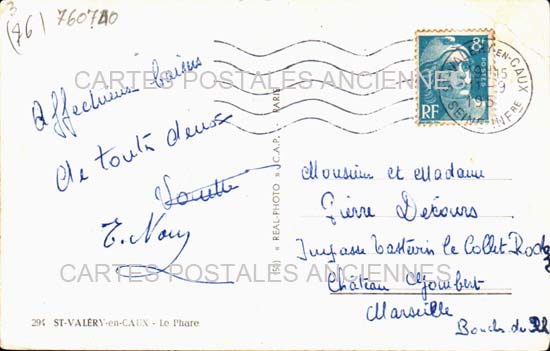 3
(76) 760740
Affectueux baisers
de toutes deux
CARTES POSTALES ANCIENNES
8F
POSTES
RF
VALERY-EN-CAUX
15
195
SEINE-INFRE
Monsieur et Madame
Pierre Decours
Impasse Tastevin le Collet
Château Gombert
Marseille
Bouches du Rh
(51) « REAL-PHOTO » C.A.P. PARIS
CARTES POSTALES ANCIENNES
294 ST-VALÉRY-en-CAUX - Le Phare